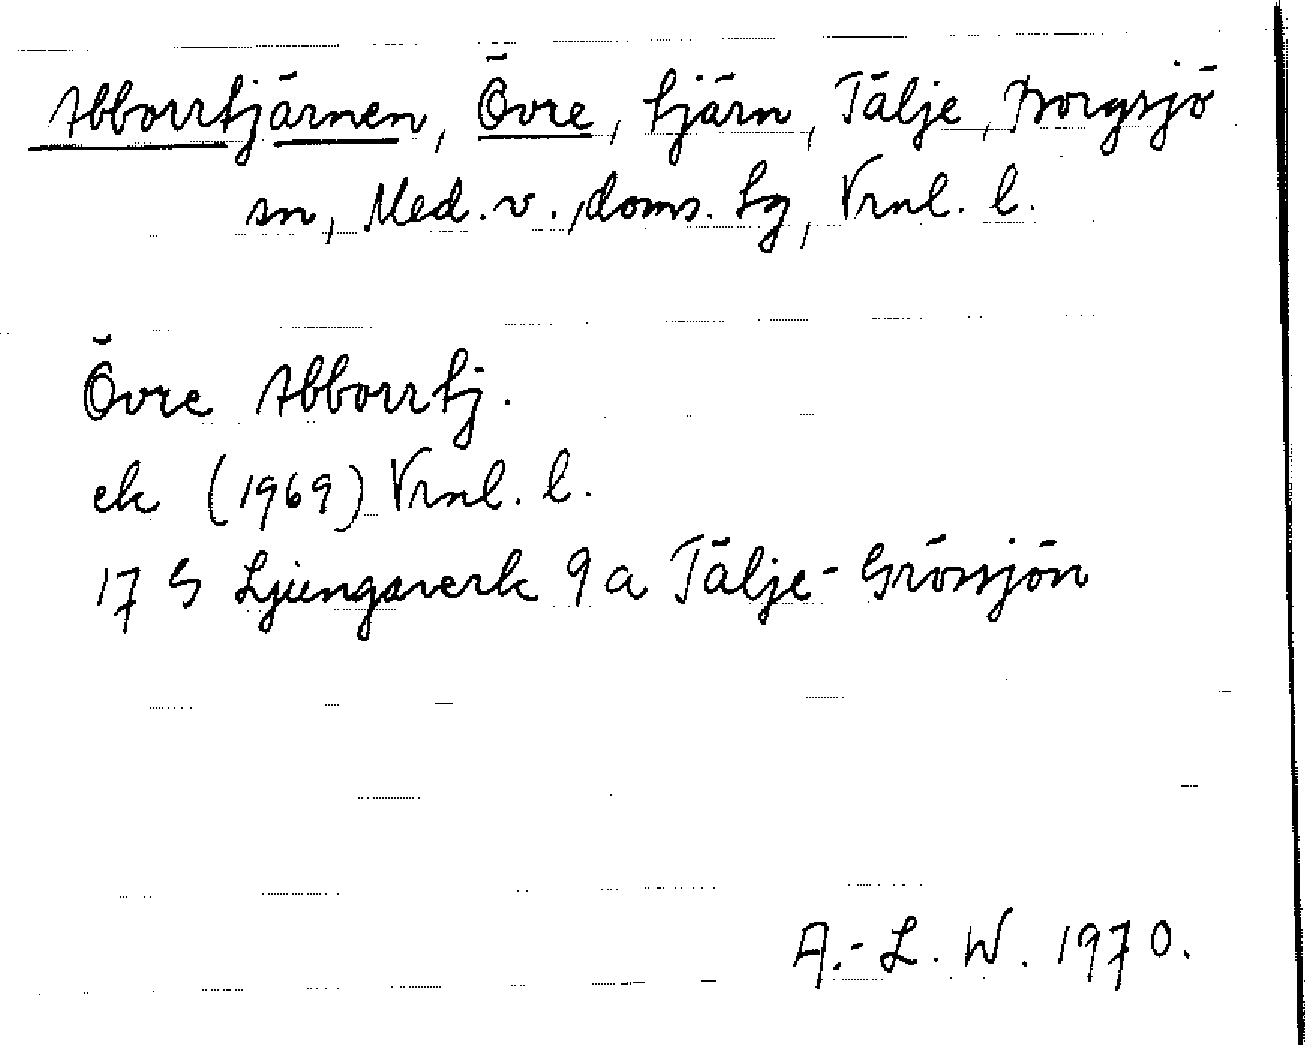 Abborrtjärnen, Övre, tjärn, Tälje, Borgsjö
sn, Med. v., doms. tg, Vrnl. l.
Övre Abborrtj.
ek (1969) Vrnl. l.
17 G Ljungaverk 9 a Tälje-Grössjön
A.-L. W. 1970.